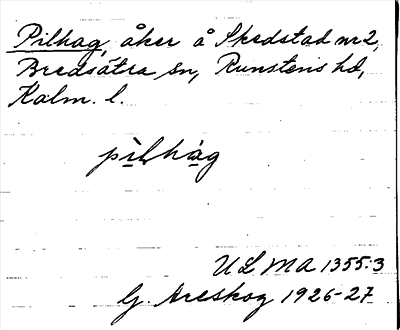 Pilhag, åker å Skedstad nr 2,
Bredsätra sn, Runstens hd,
Kalm. l.
pilhag
ULMA 1355:3
G. Areskog 1926-27